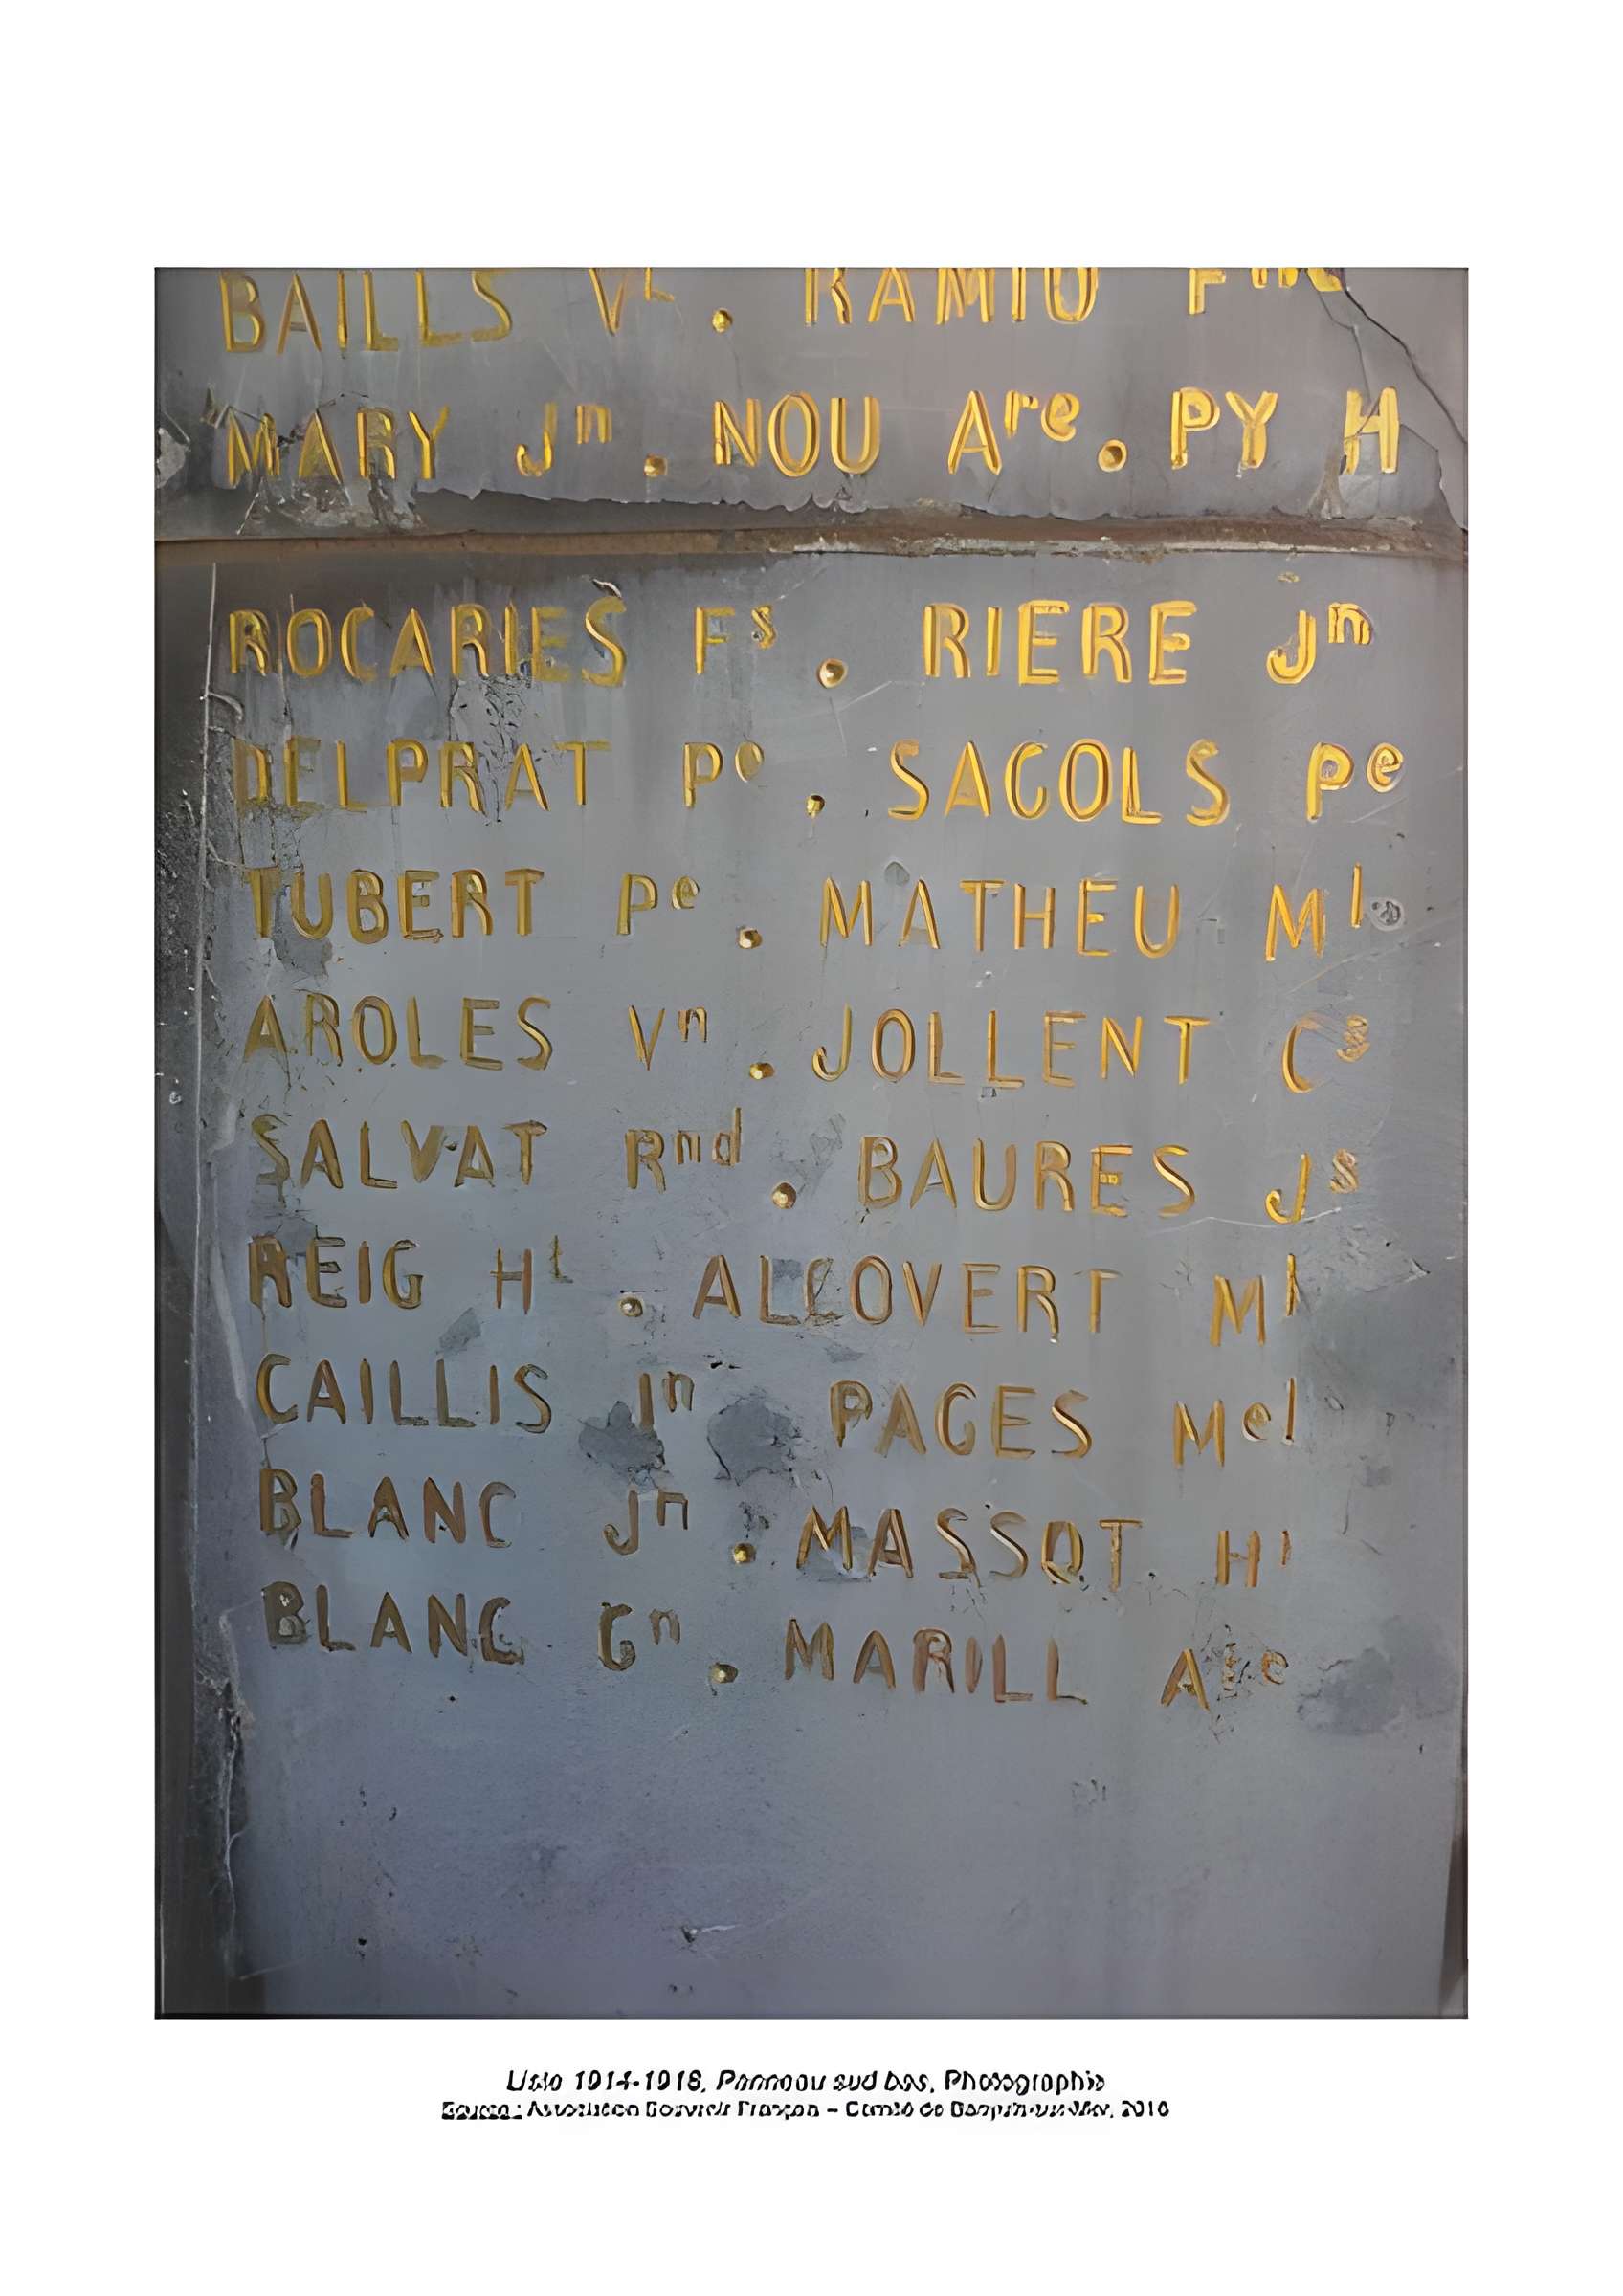 BAILLS Vt . RAMIO Find
MARY Jn . NOU Are . PY H
ROCARIES Fs . RIERE Jn
DELPRAT Pe . SAGOLS Pe
TUBERT Pe . MATHEU Mle
AROLES Vn . JOLLENT Cs
SALVAT Rnd . BAURES Js
REIG Ht . ALCOVERT Ml
CAILLIS Jn PAGES Mel
BLANC Jn . MASSOT Hi
BLANC Gn . MARILL
Liste 1914-1918, Panneau sud bas, Photographie
Source : Association Souvenir Français – Comité de Banyuls-sur-Mer, 2018